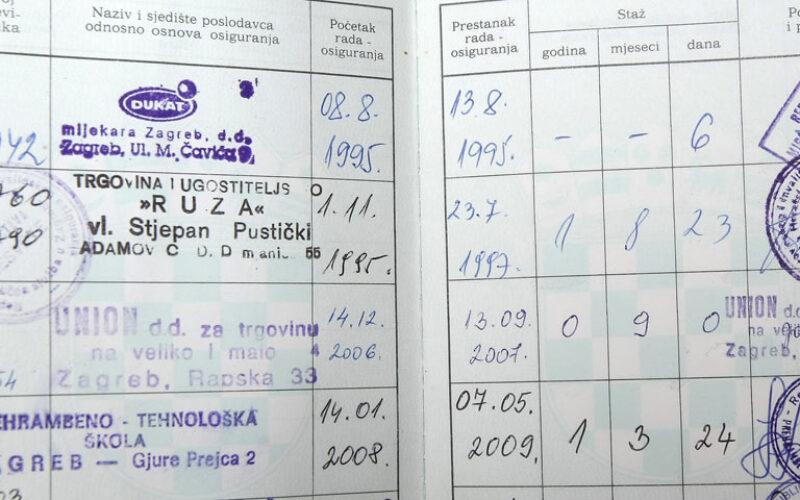 Naziv i sjedište poslodavca
odnosno osnova osiguranja
Početak
rada -
osiguranja
Prestanak
rada -
osiguranja
Staž
godina
mjeseci
dana
DUKAT
mljekara Zagreb, d.d.
Zagreb, Ul. M. Čavića 9,
08.8.
1995.
13.8.
1995.
-
-
6
TRGOVINA I UGOSTITELJS O
»R U Z A«
vl. Stjepan Pustički
ADAMOV C
55
1.11.
1995.
23.7.
1997.
1
8
23
UNION d.d. za trgovinu
na veliko i malo 4
Zagreb, Rapska 33
14.12.
2006.
13.09.
2007.
0
9
0
UNION d.
na veli
Zagreb,
HRAMBENO - TEHNOLOŠKA
ŠKOLA
GREB — Gjure Prejca 2
14.01.
2008.
07.05.
2009.
1
3
24